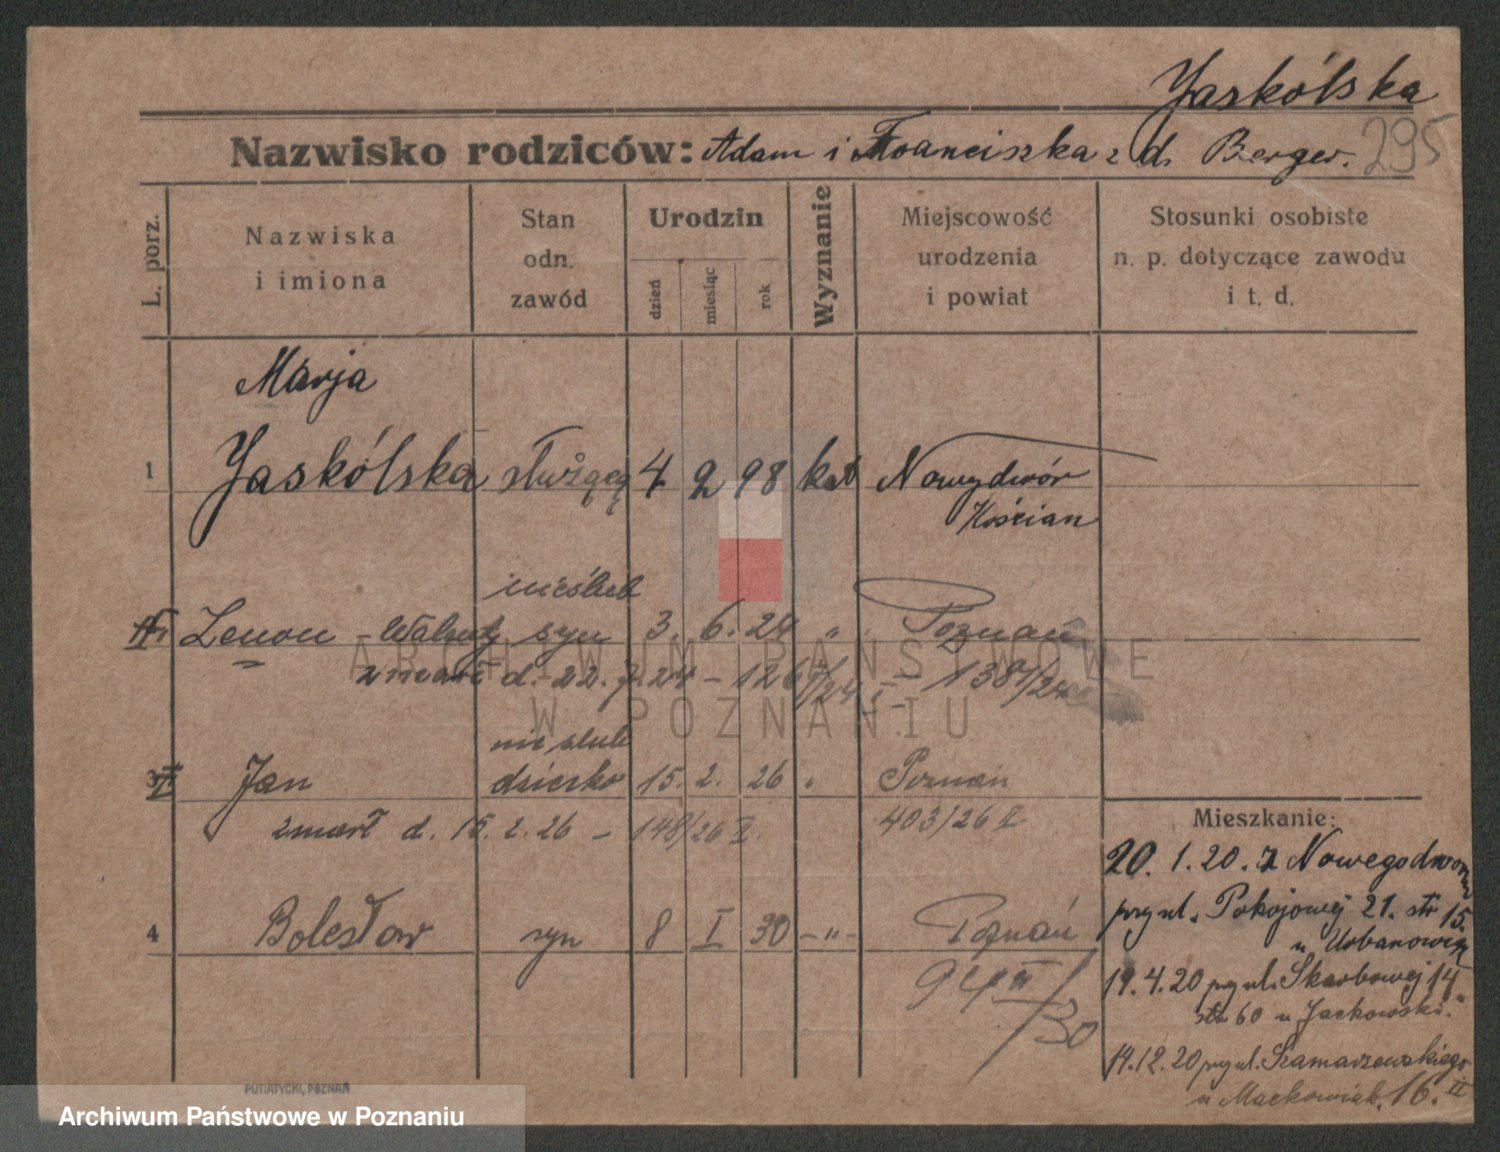 Jaskólska
295
Nazwisko rodziców: Adam i Franciszka z d. Berger.
L. porz.
Nazwiska
i imiona
Stan
odn.
zawód
Urodzin
dzień
miesiąc
rok
Wyznanie
Miejscowość
urodzenia
i powiat
Stosunki osobiste
n. p. dotyczące zawodu
i t. d.
Marja
1 Jaskólska służącą 4 2 98 kat Nowydwór
Kościan
nieślub
Zenon - Walenty syn 3. 6. 24 " Poznań
zmarł d. 22. 7. 24 - 1381/24
nieślub
3 Jan dziecko 15. 2. 26 " Poznań
zmarł d. 15. 2. 26 - 148/26 II. 403/26 II
4 Bolesław syn 8 I 30 -"- Poznań
94 II/30
Mieszkanie:
20. 1. 20. z Nowegodworu
przy ul. Pokojowej 21. str 15.
u Urbanowicz
19. 4. 20 przy ul. Skarbowej 14
str 60 u Jackowski.
14. 12. 20 przy ul. Szamarzewskiego
u Maćkowiak. 16. II
PUTIATYCKI, POZNAŃ
ARCHIWUM PAŃSTWOWE
W POZNANIU
Archiwum Państwowe w Poznaniu